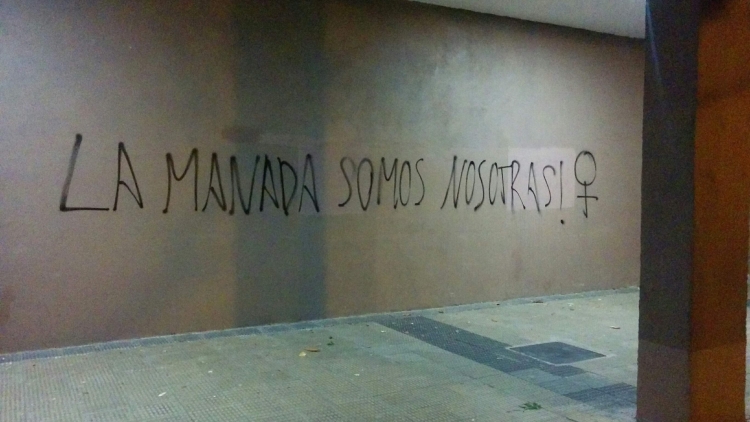 LA MANADA SOMOS NOSOTRAS! ♀